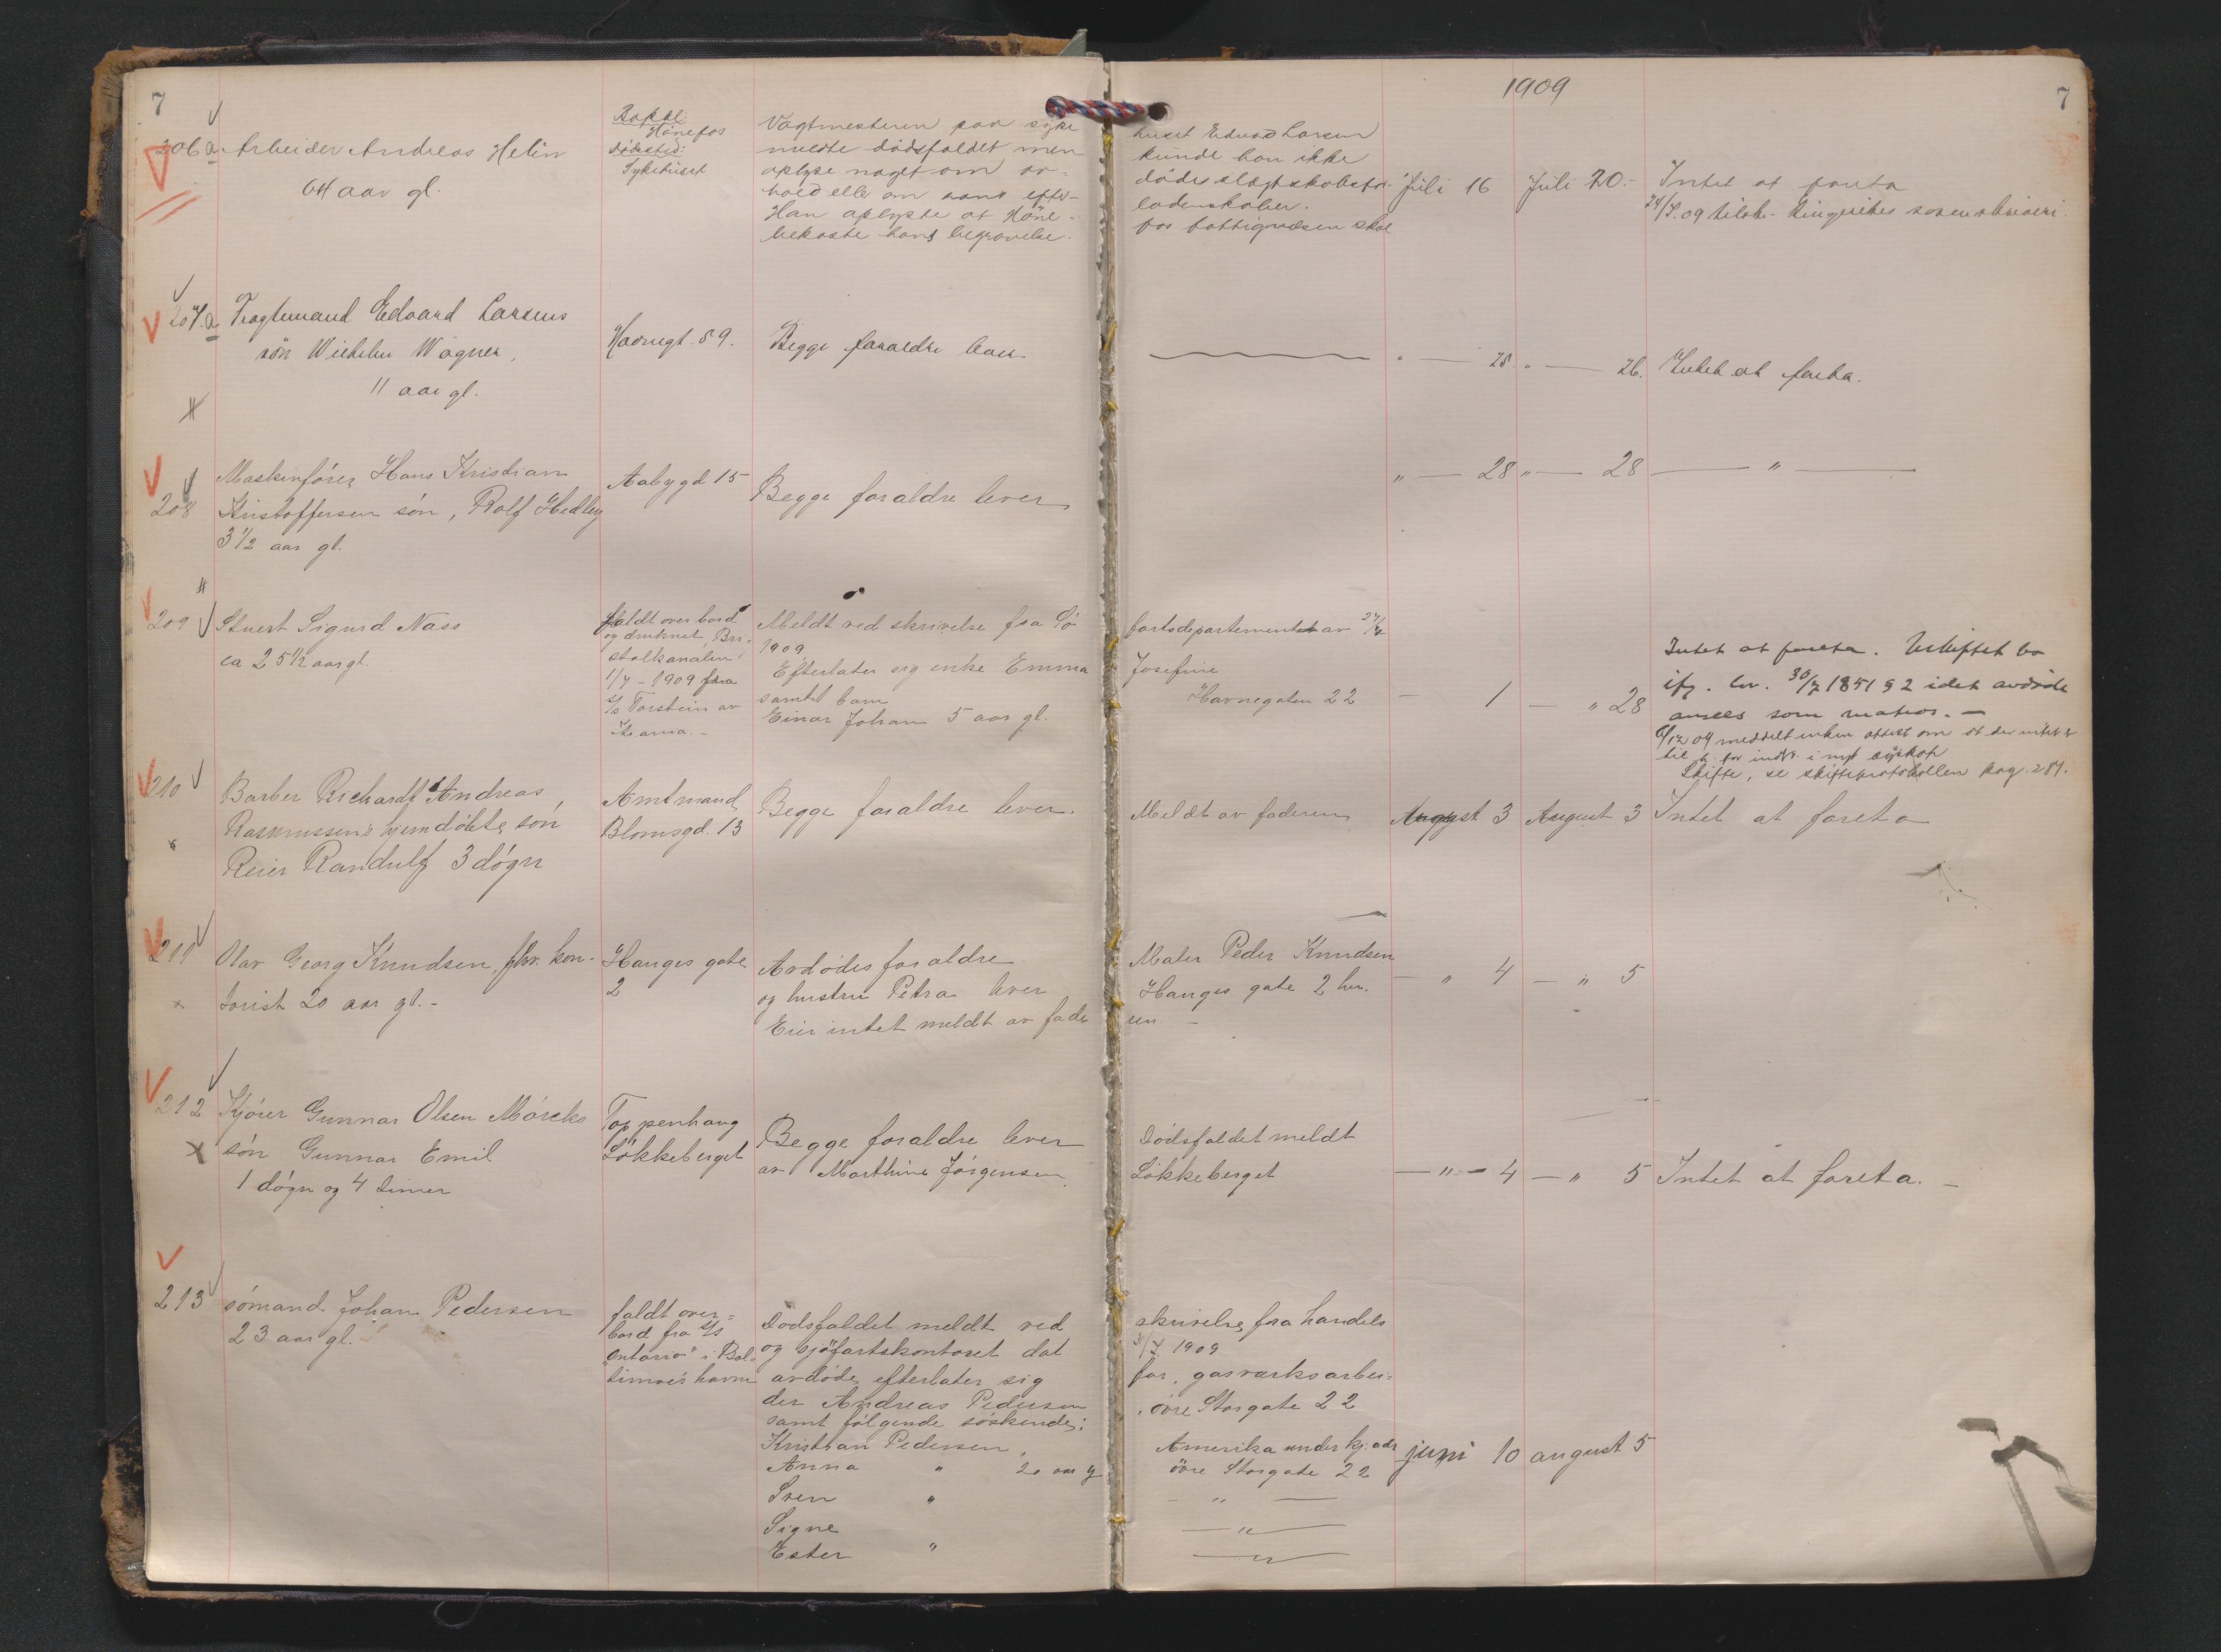 7
1909
7
206a Arbeider Andreas Helin
64 aar gl.
Bopæl:
Hönefos
dödssted:
Sykehuset
Vagtmesteren paa syke huset Edvard Larsen
meldte dödsfaldet men kunde han ikke
oplyse noget om av= dödes slegtskabsfor-
hold eller om hans efter- ladenskaber.
Han oplyste at Höne- fos fattigvæsen skal
bekoste hans begravelse.
Juli 16 Juli 20.-
Intet at foreta
24/7.09 tilskr. Ringerikes sorenskriveri.
207.a Fragtemand Edvard Larsens
sön Wilhelm Wagner,
11 aar gl.
Havnegt. 59.
Begge forældre lever
" — 25. " — 26. Intet at foreta.
208
Maskinförer Hans Kristian
Kristoffersen sön, Rolf Hedley
3 1/2 aar gl.
Aabygd 15
Begge forældre lever
" — 28 " — 28 — " —
209 Stuert Sigurd Næss
ca 25 1/2 aar gl.
faldt over bord
og druknet Bri-
stolkanalen
1/7 - 1909 fra
s/s Torstein av
Kr.ania. -
Meldt ved skrivelse fra Sö fartsdepartementet av 27/7
1909
Efterlater sig enke Emma Josefine
Havnegaten 22
samt barn
Einar Johan 5 aar gl.
— 1 — " 28
Intet at foreta. Uskiftet bo
ifg. lov. 30/7 1851 § 2 idet avdöde
ansees som matros. —
6/12 09 meddelt enken attest om at der intet er
til h. for
Skifte, se skifteprotokollen pag. 281.
210
Barber Richardt Andreas
Rasmussens hjemdöbte sön
Reier Randulf 3 dógn
Amtmand
Blomsgd. 13
Begge forældre lever.
Meldt av faderen
August 3 August 3 Intet at foreta
211 Olav Georg Knudsen, fhv. kon-
torist 20 aar gl. -
Hauges gate
2
Avdödes forældre Maler Peder Knudsen
og hustru Petra lever Hauges gate 2 her.
Eier intet meldt av fade ren. -
— " 4 — " 5
212 Kjörer Gunnar Olsen Mörcks
són Gunnar Emil
1 dógn og 4 timer
Toppenhaug
Lökkeberget
Begge forældre lever Dödsfaldet meldt
av Marthine Jörgensen Lökkeberget
— " — 4 — " 5 Intet at foreta. —
213 sómand Johan Pedersen
23 aar gl.
faldt over=
bord fra s/s
"Ontario" i Bal=
timore havn
Dödsfaldet meldt ved skrivelse fra handels
og sjöfartskontoret dat 31/7. 1909
avdöde efterlater sig far, gasværksarbei=
der Andreas Pedersen, övre Storgate 22
samt fölgende söskende:
Kristian Pedersen, Amerika under kj. adr
Anna " 20 aar gl övre Storgate 22
Sven " - " —
Signe — " —
Ester " — " —
juni 10 august 5